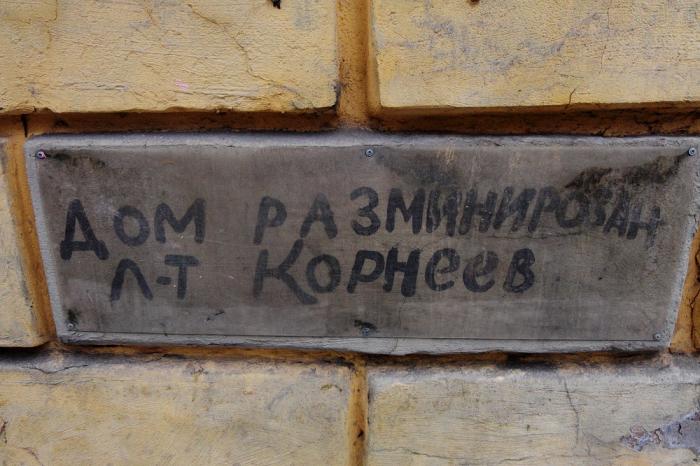 ДОМ РАЗМИНИРОВАН
Л-Т КОРНЕЕВ